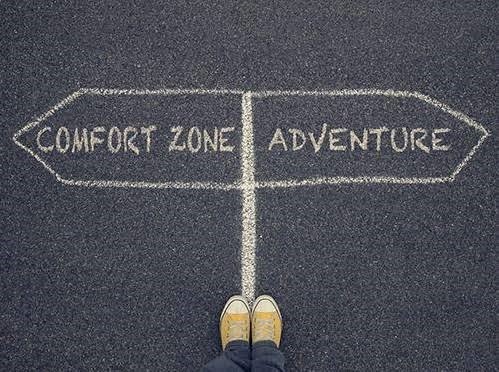 COMFORT ZONE ADVENTURE